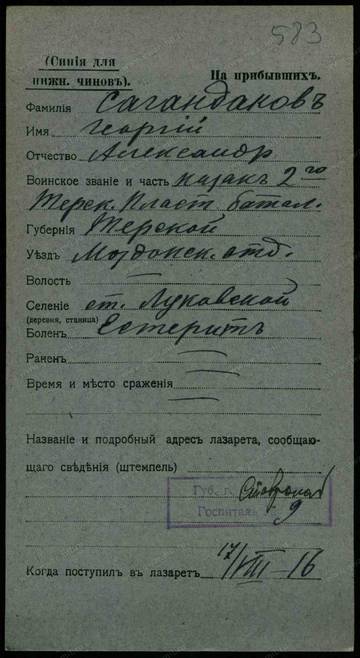 583
(Синія для
нижн. чиновъ).
На прибывшихъ.
Фамилія Сагандаковъ
Имя Георгій
Отчество Александр
Воинское званіе и часть казакъ 2го
Терск. Пласт. батал.
Губернія Терской
Уѣздъ Моздокск. отд.
Волость —
Селеніе ст. Луковской
(деревня, станица)
Боленъ
Раненъ —
Время и мѣсто сраженія —
Названіе и подробный адресъ лазарета, сообщаю-
щаго свѣдѣнія (штемпель)
Губ. г. Ставрополь
Госпиталь 9
Когда поступил въ лазаретъ 17/VIII-16